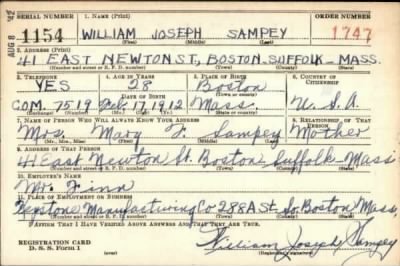 SERIAL NUMBER 1. NAME (Print) ORDER NUMBER
1154 WILLIAM JOSEPH SAMPEY 1747
(First) (Middle) (Last)
2. ADDRESS (Print)
41 EAST NEWTON ST, BOSTON, SUFFOLK - MASS.
(Number and street or R. F. D. number) (Town) (County) (State)
3. TELEPHONE 4. AGE IN YEARS 5. PLACE OF BIRTH 6. COUNTRY OF CITIZENSHIP
YES 28 Boston
DATE OF BIRTH (Town or county)
COM. 7519 Feb. 17, 1912 Mass. U.S.A.
(Exchange) (Number) (Mo.) (Day) (Yr.) (State or country)
7. NAME OF PERSON WHO WILL ALWAYS KNOW YOUR ADDRESS 8. RELATIONSHIP OF THAT PERSON
Mrs. Mary F. Sampey Mother
(Mr., Mrs., Miss) (First) (Middle) (Last)
9. ADDRESS OF THAT PERSON
41 East Newton St. Boston Suffolk - Mass
(Number and street or R. F. D. number) (Town) (County) (State)
10. EMPLOYER'S NAME
Mr. Finn
11. PLACE OF EMPLOYMENT OR BUSINESS
Keystone Manufacturing Co 288 A St. So. Boston Mass.
(Number and street or R. F. D. number) (Town) (County) (State)
I AFFIRM THAT I HAVE VERIFIED ABOVE ANSWERS AND THAT THEY ARE TRUE.
REGISTRATION CARD
D. S. S. Form 1
William Joseph Sampey
(Registrant's signature)
AUG 8 '42